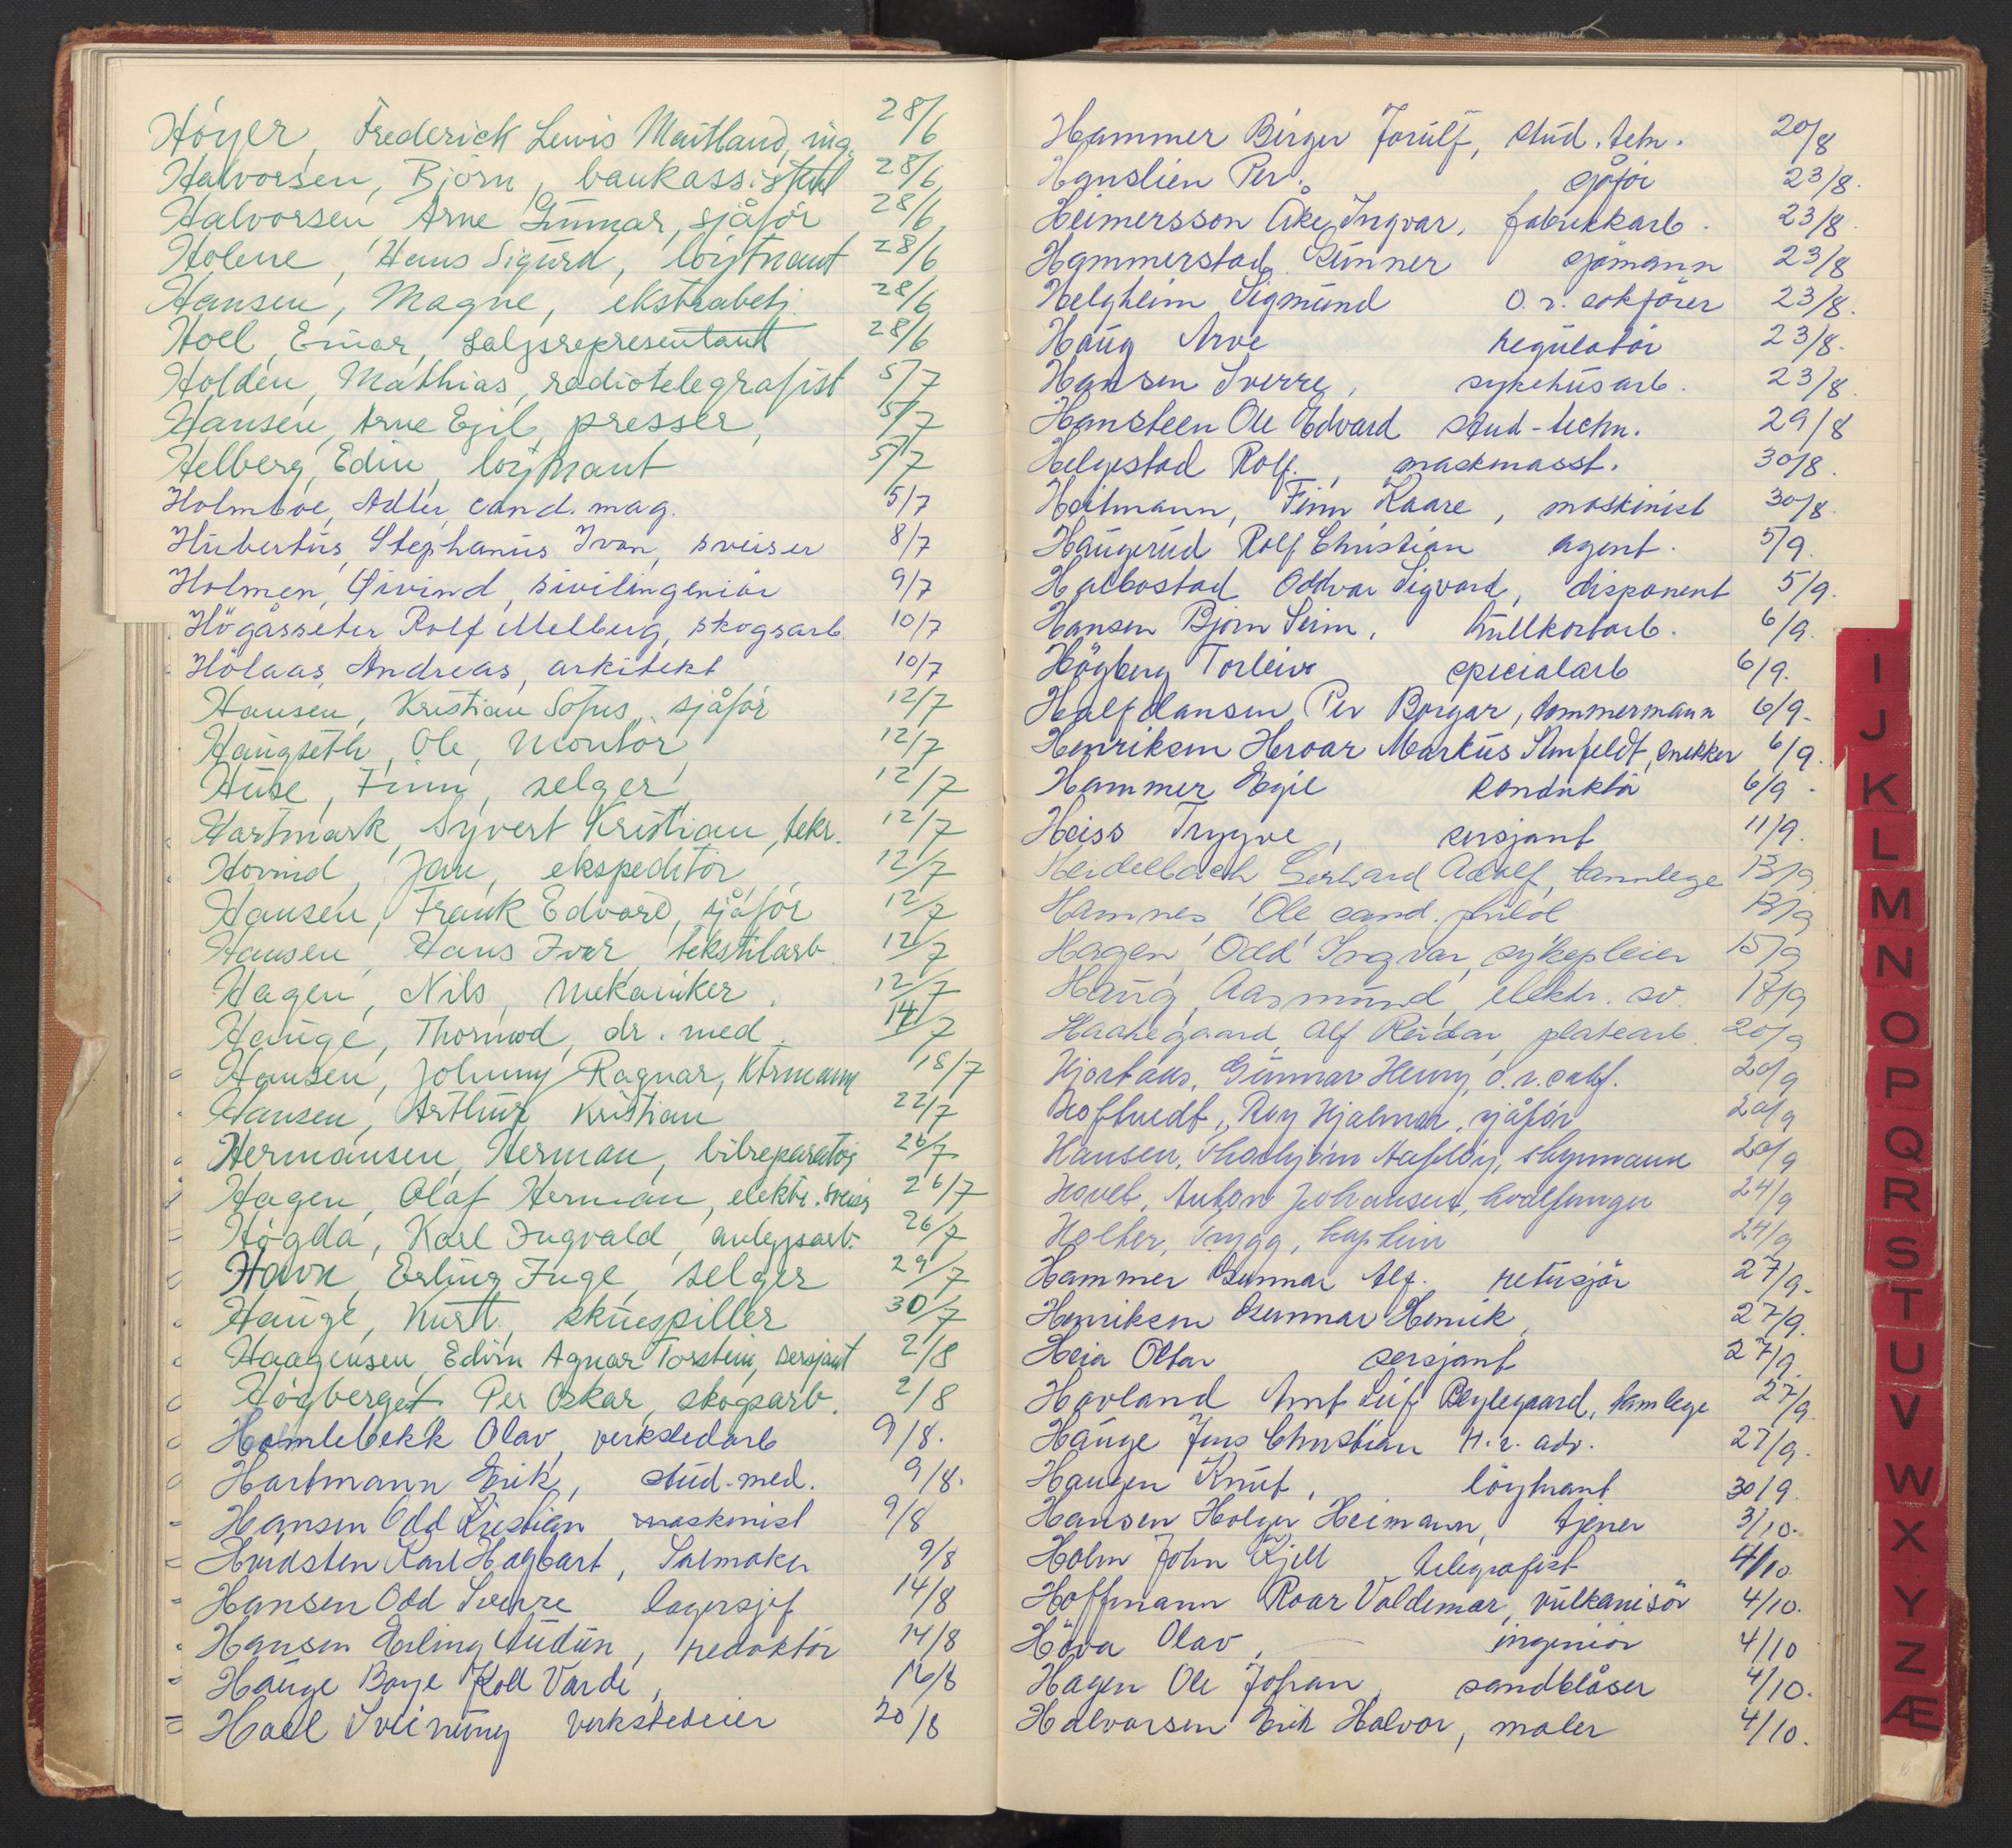 Höyer, Frederick Lewis Maitland, ing. 28/6
Halvorsen, Björn, bankassistent 28/6
Halvorsen, Arne Gunnar, sjåför 28/6
Holene, Hans Sigurd, löytnant 28/6
Hansen, Magne, ekstrabetj. 28/6
Hoel, Einar, salgsrepresentant 28/6
Holden, Mathias, radiotelegrafist 5/7
Hansen, Arne Egil, presser, 5/7
Helberg, Edin, löytnant 5/7
Holmboe, Adler, cand. mag. 5/7
Hubertus, Stephanus Ivan, sveiser 8/7
Holmen, Øivind, sivilingeniör 9/7
Högåsseter Rolf Melberg, skogsarb. 10/7
Hölaas, Andreas, arkitekt 10/7
Hansen, Kristian Sofus, sjåför 12/7
Haugseth, Ole, montör 12/7
Huse, Finn, selger 12/7
Hartmark, Syvert Kristian, tekr. 12/7
Hovind, Jan, ekspeditör 12/7
Hansen, Frank Edvard, sjåför 12/7
Hansen, Hans Ivar tekstilarb. 12/7
Hagen, Nils, mekaniker. 12/7
Hauge, Thormod, dr. med. 14/7
Hansen, Johnny Ragnar, 18/7
Hansen, Arthur Kristian 22/7
Hermansen, Herman, bilreparatör 26/7
Hagen, Olaf Herman, elektr. sveis 26/7
Högda, Karl Ingvald, anleggsarb. 26/7
Havn, Erling Inge, selger 29/7
Hauge, Kurt, skuespiller 30/7
Haagensen, Edvin Agnar Torstein, sersjant 2/8
Högberget Per Oskar, skogsarb. 2/8
Homlebekk Olav, verkstedarb 9/8.
Hartmann Erik, stud. med. 9/8.
Hansen Odd Kristian maskinist 9/8
Hvidsten Karl Hagbart, Salmaker 9/8
Hansen Odd Sverre lagersjef 14/8
Hansen Erling Audun, redaktör 14/8
Hauge Boye Koll Varde, 16/8
Hoel Sveinung verkstedeier 20/8
Hammer Birger Jorulf, stud. tekn. 20/8
Hanslien Per. sjåför 23/8.
Heimersson Åke Ingvar, fabrikkarb. 23/8.
Hammerstad Gunner sjömann 23/8
Helgheim Sigmund O.r. sakförer 23/8.
Haug Arve regulatör 23/8.
Hansen Sverre, sykehusarb. 23/8.
Hansteen Ole Edvard stud-techn. 29/8
Helgestad Rolf, maskinasst. 30/8.
Heitmann, Finn Kaare, maskinist 30/8.
Haugerud Rolf Christian agent. 5/9.
Halbostad Oddvar Sigvard, disponent 5/9.
Hansen Bjørn Seim, hullkortarb. 6/9.
Högberg Torleiv specialarb 6/9.
Halfdansen Per Borgar, tømmermann 6/9.
Henriksen Hroar Markus Amfeldt, snekker 6/9.
Hammer Egil konduktör 6/9.
Heiss Trygve, sersjant 11/9.
Heidelbach Gerhard Adolf, tannlege 13/9
Hamnes, Ole cand. philol 13/9
Hagen, Odd Ingvar, sykepleier 15/9
Haug, Aasmund, elektr. sv. 17/9
Haakegaard, Alf Reidar, platearb. 20/9
Hjortaas, Gunnar Henry, o.r.sakf. 20/9
Hoftvedt, Roy Hjalmar, sjåför 20/9
Hansen, Thorbjörn Aaslöy, styrmann 20/9
Hovelt, Anton Johansen, hvalfanger 24/9
Holter, Trygg, kaptein 24/9
Hammer Gunnar Alf. retusjör 27/9.
Henriksen Gunnar Henrik, 27/9.
Heia Ottar sersjant 27/9.
Havland Arnt Leif Beylegaard, tannlege 27/9
Hauge Jens Christian H.r. adv. 27/9.
Haugen Knut, löytnant 30/9.
Hansen Holger Heimann, tjener 3/10.
Holm John Kjell telegrafist 4/10.
Hoffmann Roar Valdemar, vulkanisör 4/10.
Höva Olav, ingeniör 4/10
Hagen Ole Johan, sandblåser 4/10.
Halvorsen Erik Halvor, maler 4/10.
I
J
K
L
M
N
O
P
Q
R
S
T
U
V
W
X
Y
Z
Æ